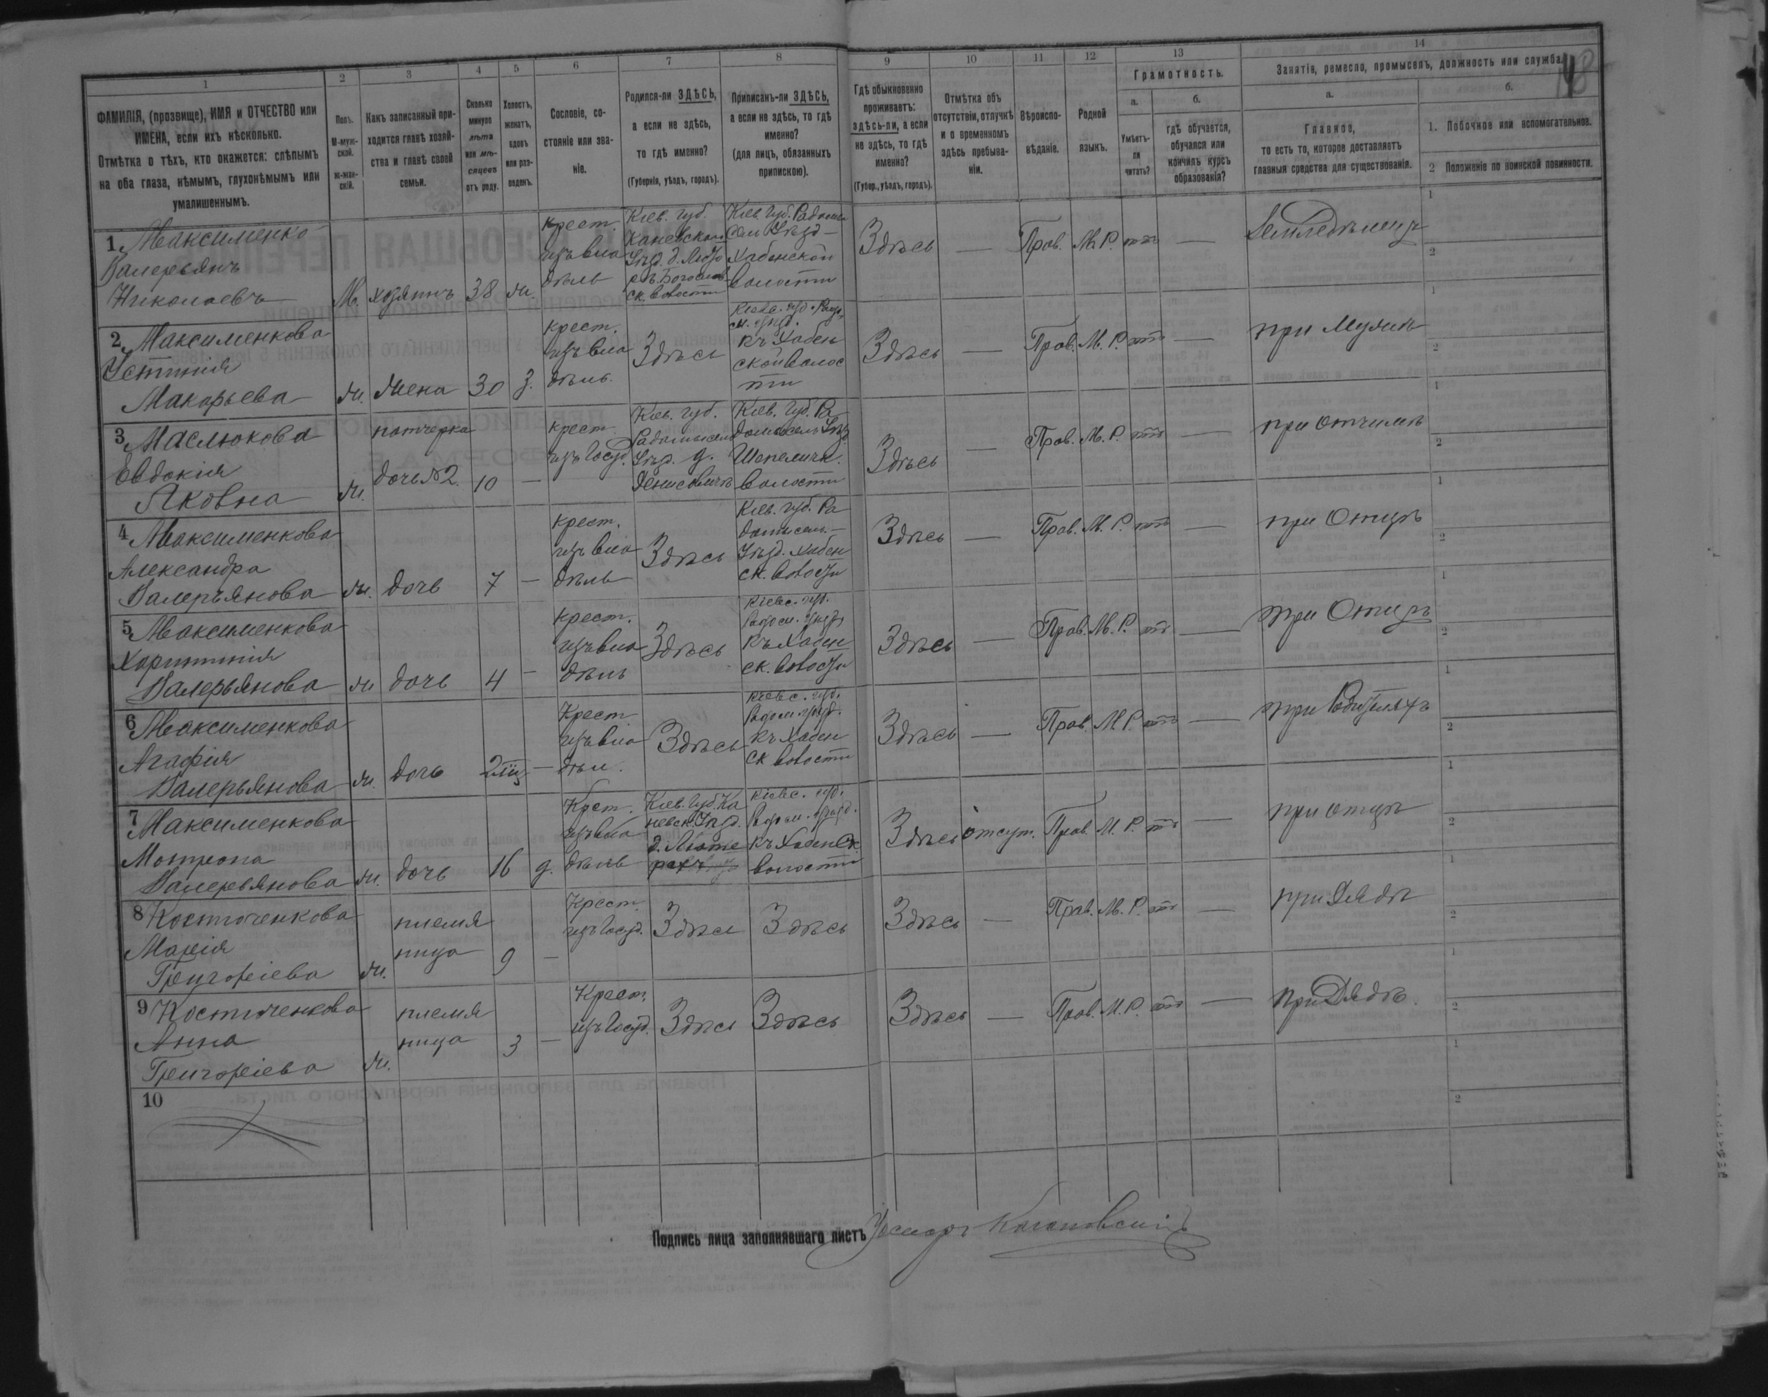 1 2 3 4 5 6 7 8 9 10 11 12 13 14
ФАМИЛІЯ, (прозвище), ИМЯ и ОТЧЕСТВО или
ИМЕНА, если ихъ нѣсколько.
Отмѣтка о тѣхъ, кто окажется: слѣпымъ
на оба глаза, нѣмымъ, глухонѣмымъ или
умалишеннымъ.
Полъ.
М-муж-
ской.
Ж-жен-
скій.
Какъ записанный при-
ходится главѣ хозяй-
ства и главѣ своей
семьи.
Сколько
минуло
лѣтъ
или мѣ-
сяцевъ
отъ роду.
Холостъ,
женатъ,
вдовъ
или раз-
веденъ.
Сословіе, со-
стояніе или зва-
ніе.
Родился-ли ЗДѢСЬ,
а если не здѣсь,
то гдѣ именно?
(Губернія, уѣздъ, городъ).
Приписанъ-ли ЗДѢСЬ,
а если не здѣсь, то гдѣ
именно?
(для лицъ, обязанныхъ
припискою).
Гдѣ обыкновенно
проживаетъ:
здѣсь-ли, а если
не здѣсь, то гдѣ
именно?
(Губер., уѣздъ, городъ).
Отмѣтка объ
отсутствіи, отлучкѣ
и о временномъ
здѣсь пребыва-
ніи.
Вѣроиспо-
вѣданіе.
Родной
языкъ.
Грамотность.
а.
Умѣетъ-
ли
читать?
б.
гдѣ обучается,
обучался или
кончилъ курсъ
образованія?
Занятіе, ремесло, промыселъ, должность или служба.
а.
Главное,
то есть то, которое доставляетъ
главныя средства для существованія.
б.
1. Побочное или вспомогательное.
2 Положеніе по воинской повинности.
1 Максименко
Валерьянъ
Николаевъ
М. хозяинъ 38 ж.
крест.
изъ вла
дѣль
Кіев. губ.
Каневскаго
Уѣзд.
ск. волости
Кіев. губ. Радомы
Уѣзд
Хабенской
волости
Здѣсь — Прав. М. Р. нѣтъ — Земледѣлецъ
2 Максименкова
Устинія
Макарьева
ж. жена 30 з.
крест.
изъ вла
дѣль.
Здѣсь
Кіевс. губ. Радо
м. уѣзд.
къ Хабен
ской волос
ти
Здѣсь — Прав. М. Р. нѣтъ — при мужѣ
3 Маслюкова
Евдокія
Яковна
ж. падчерка
дочь №2. 10 —
крест.
изъ Госуд.
Кіев. губ.
Уѣзд. д.
Денисовичъ
Кіев. Губ. Ра
Шепелич.
волости
Здѣсь — Прав. М. Р. нѣтъ — при отчимѣ
4 Максименкова
Александра
Валерьянова
ж. дочь 7 —
крест.
изъ вла
дѣль
Здѣсь
Кіев. губ. Ра
домысль
Уѣзд. Хабен
ск. волости
Здѣсь — Прав. М. Р. нѣтъ — при Отцѣ
5 Максименкова
Харитинія
Валерьянова
ж. дочь 4 —
крест.
изъ вла
дѣль
Здѣсь
Кіевс. губ.
Радом. уѣзд.
къ Хабен
ск. волости
Здѣсь — Прав. М. Р. нѣтъ — при Отцѣ
6 Максименкова
Агафія
Валерьянова
ж. дочь —
Крест
изъ вла
дѣл.
Здѣсь
Кіевс. губ.
Радом. уѣзд.
къ Хабен
ск волости
Здѣсь — Прав. М Р. нѣтъ — при Родителяхъ
7 Максименкова
Мотрона
Валерьянова
ж. дочь 16 д.
Крест.
изъ вла
дѣль
Кіев. Губ. Ка
невск. Уѣзд.
Кіевс. губ.
Радом. уѣзд.
къ Хабенск.
волости
Здѣсь отсут. Прав. М. Р. нѣтъ — при отцѣ
8 Костюченкова
Марія
Григоріева
ж. племя
ница 9 —
Крест.
изъ Госуд.
Здѣсь Здѣсь Здѣсь — Прав. М. Р. нѣтъ — при Дядѣ
9 Костюченкова
Анна
Григоріева
ж. племя
ница 3 —
Крест.
изъ Госуд.
Здѣсь Здѣсь Здѣсь — Прав. М. Р. нѣтъ — при Дядѣ.
10
Подпись лица заполнявшаго листъ